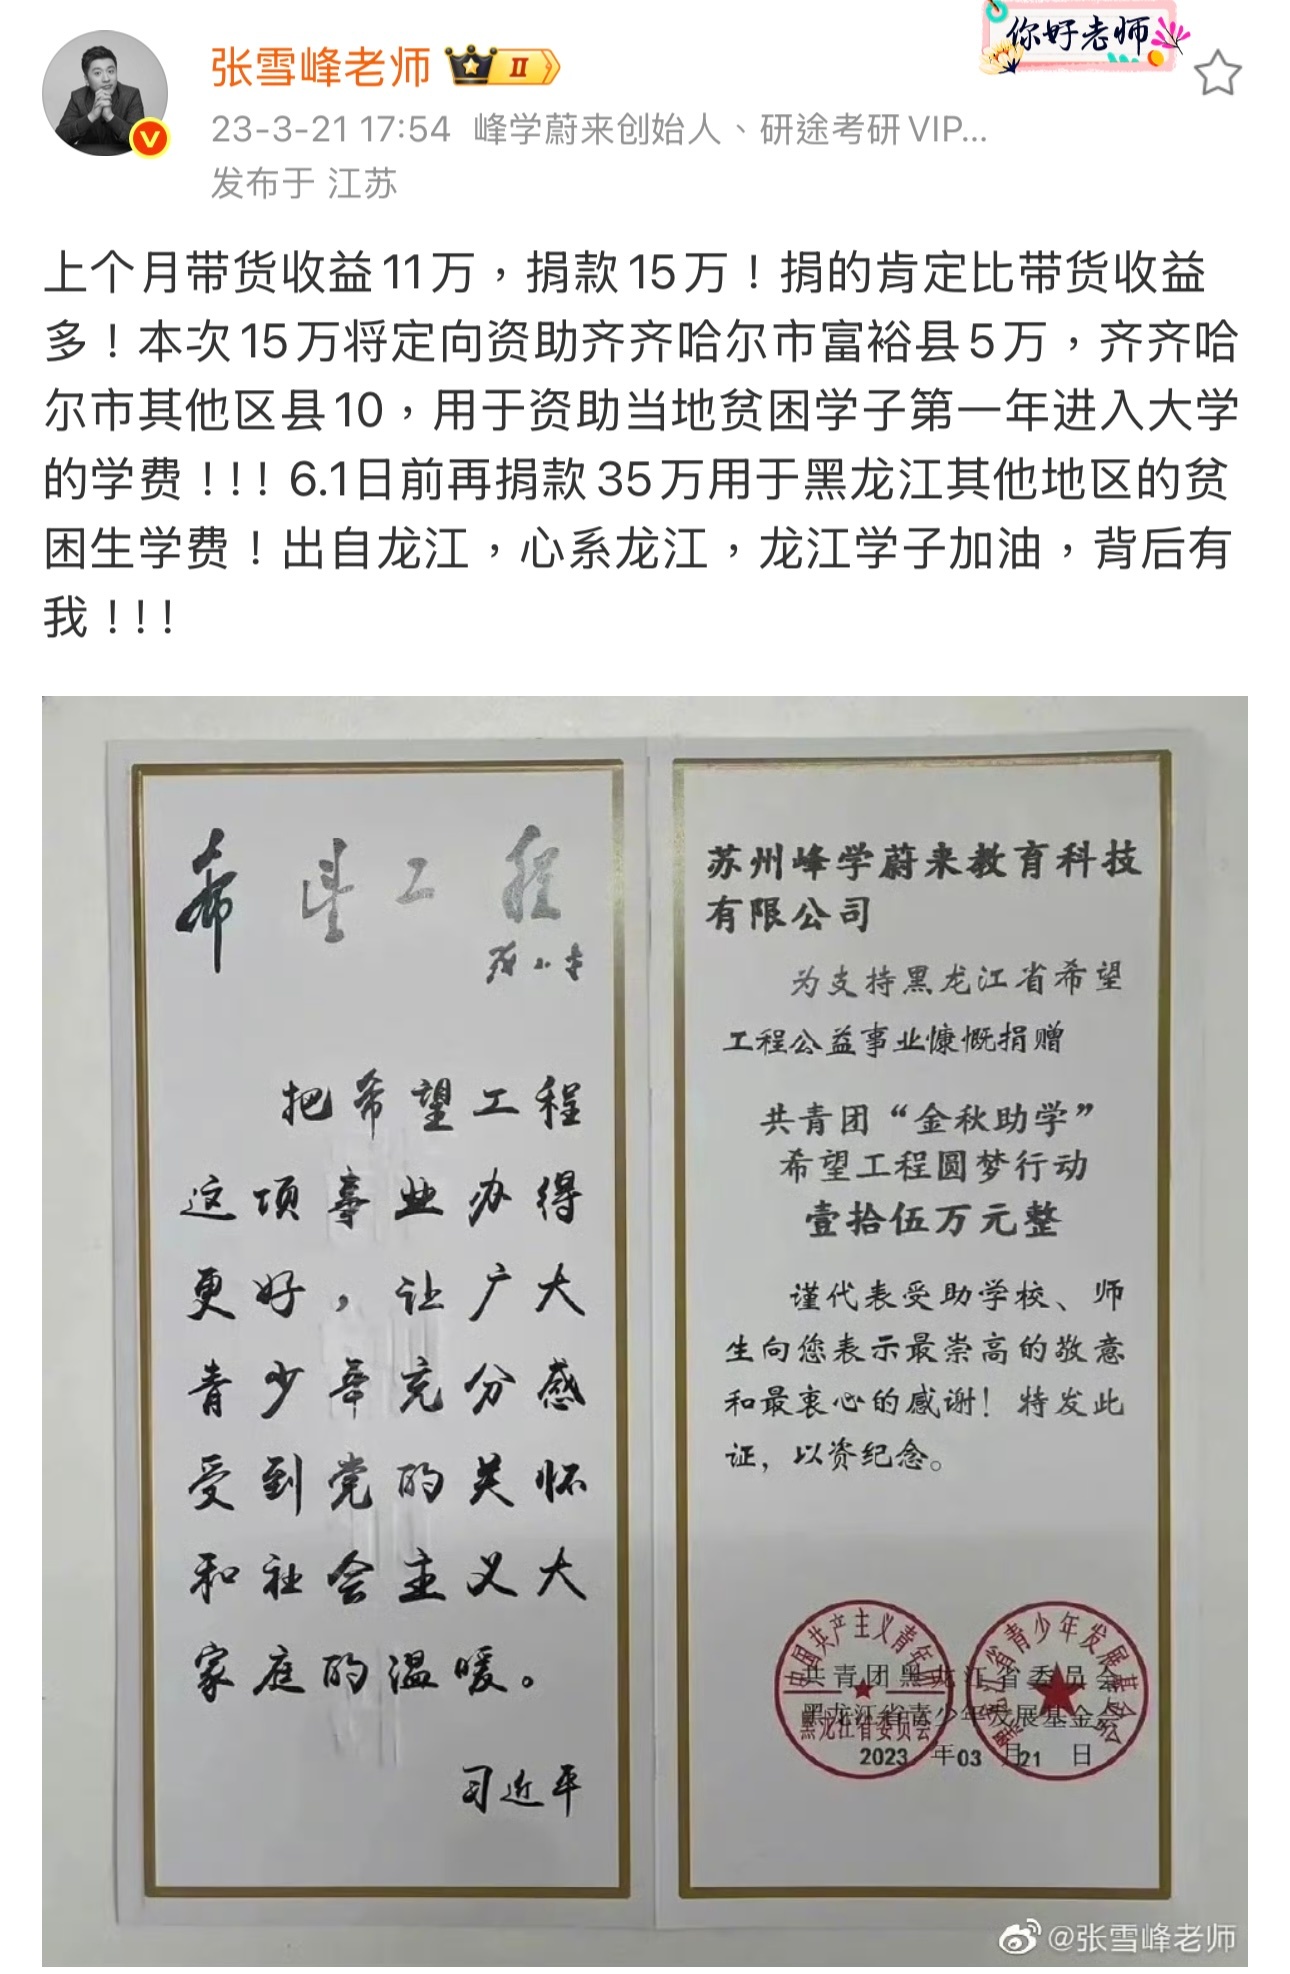 你好老师
张雪峰老师 II
23-3-21 17:54 峰学蔚来创始人、研途考研VIP...
发布于 江苏
上个月带货收益11万，捐款15万！捐的肯定比带货收益
多！本次15万将定向资助齐齐哈尔市富裕县5万，齐齐哈
尔市其他区县10，用于资助当地贫困学子第一年进入大学
的学费！!！6.1日前再捐款35万用于黑龙江其他地区的贫
困生学费！出自龙江，心系龙江，龙江学子加油，背后有
我！!！
希望工程
邓小平
把希望工程
这项事业办得
更好，让广大
青少年充分感
受到党的关怀
和社会主义大
家庭的温暖。
习近平
苏州峰学蔚来教育科技
有限公司
为支持黑龙江省希望
工程公益事业慷慨捐赠
共青团“金秋助学”
希望工程圆梦行动
壹拾伍万元整
谨代表受助学校、师
生向您表示最崇高的敬意
和最衷心的感谢！特发此
证，以资纪念。
中国共产主义青年团
黑龙江省委员会
黑龙江省青少年发展基金会
共青团黑龙江省委员会
黑龙江省青少年发展基金会
2023 年03 月21 日
@张雪峰老师